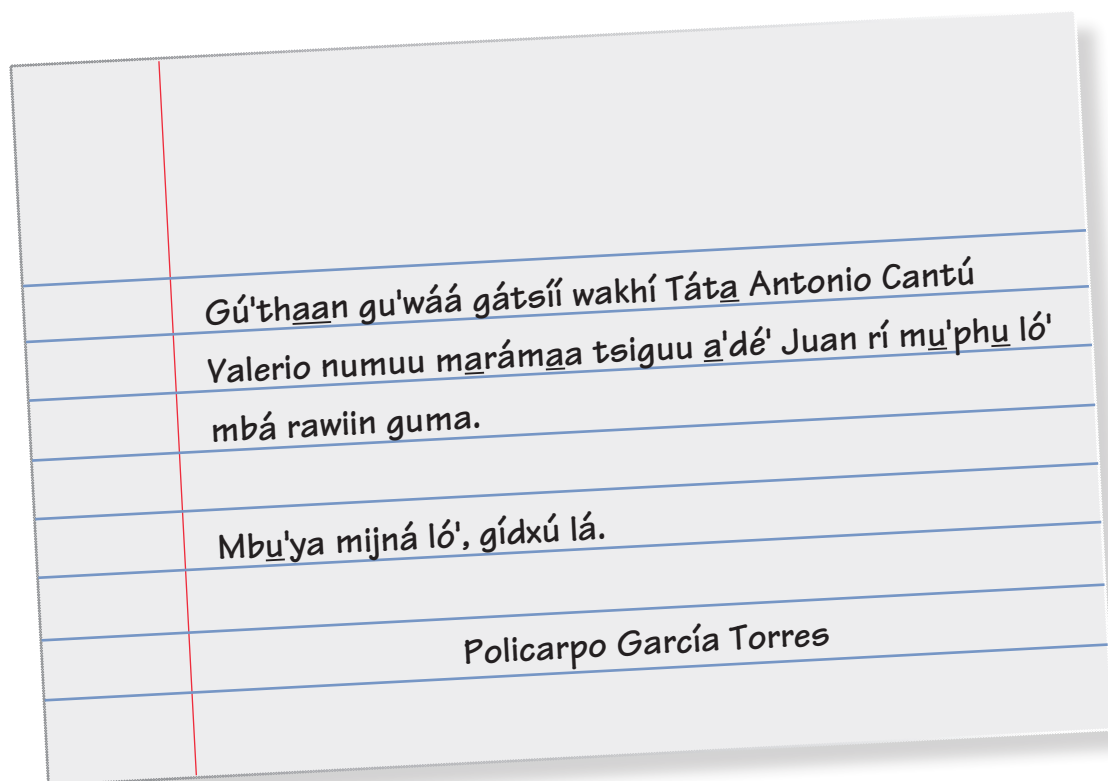 Gú'tha̱a̱n gu'wáá gátsíí wakhí Táta̱ Antonio Cantú
Valerio numuu ma̱ráma̱a tsiguu a̱'dé' Juan rí mu̱'phu̱ ló'
mbá rawiin guma.
Mbu̱'ya mijná ló', gídxú lá.
Policarpo García Torres